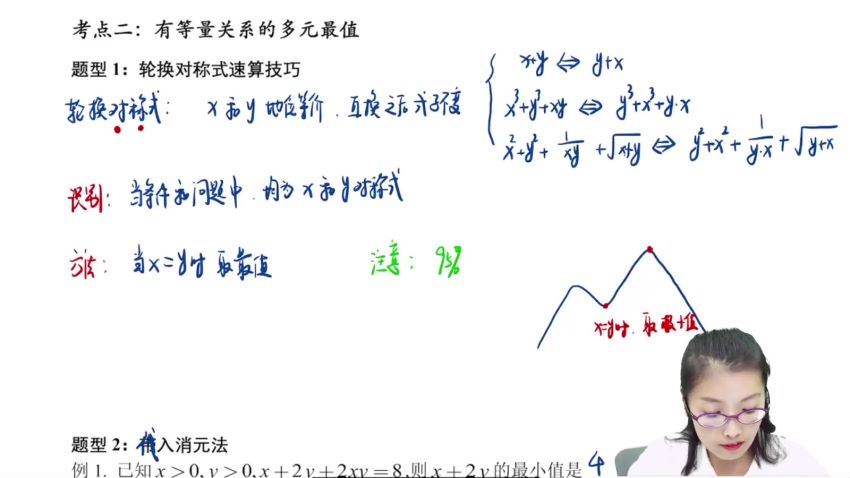 考点二：有等量关系的多元最值
题型 1：轮换对称式速算技巧
轮换对称式： x和y 地位等价，互换之后式子不变
x+y ⇔ y+x
x³+y³+xy ⇔ y³+x³+y·x
x²+y²+1/xy+√x+y ⇔ y²+x²+1/y·x+√y+x
识别：当条件和问题中，均为x和y对称式
方法：当x=y时 取最值
注意：95%
x=y时，取最小值
题型 2：代入消元法
例 1. 已知 x > 0, y > 0, x + 2y + 2xy = 8, 则 x + 2y 的最小值是 4